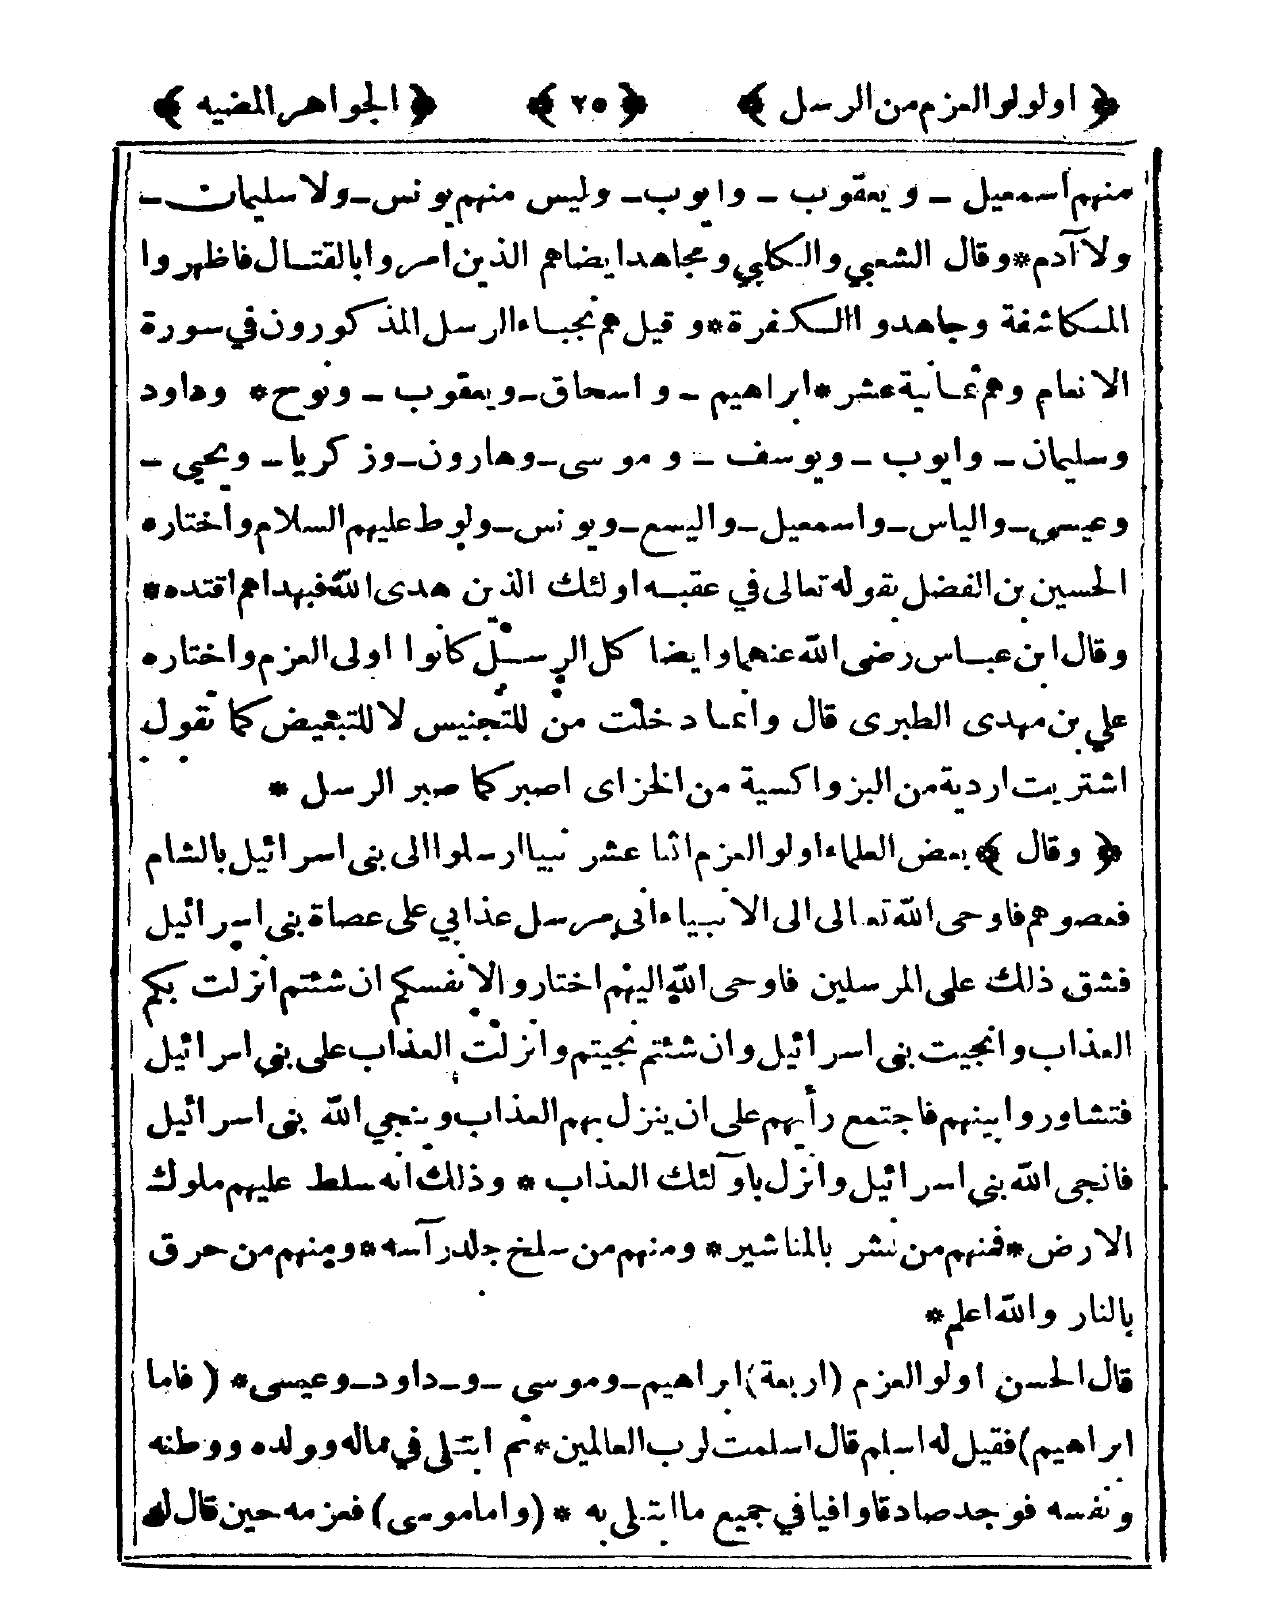 ﴿ اولو لو العزم من الرسل ﴾ ﴿ ٢٥ ﴾ ﴿ الجواهر المضيه ﴾
منهم اسمعيل ـ ويعقوب ـ وايوب ـ وليس منهم يونس ـ ولا سليمان ـ
ولا آدم * وقال الشعبي والكلبي ومجاهد ايضا هم الذين امروا بالقتال فاظهروا
المكاشفة وجاهدوا الكفرة * وقيل هم نجباء الرسل المذكورون في سورة
الانعام وهم ثمانية عشر * ابراهيم ـ واسحاق ـ ويعقوب ـ ونوح * وداود
وسليمان ـ وايوب ـ ويوسف ـ وموسى ـ وهارون ـ وزكريا ـ ويحيى ـ
وعيسى ـ والياس ـ واسمعيل ـ واليسع ـ ويونس ـ ولوط عليهم السلام واختاره
الحسين بن الفضل بقوله تعالى في عقبه اولئك الذين هدى الله فبهداهم اقتده *
وقال ابن عباس رضى الله عنهما وايضا كل الرسل كانوا اولى العزم واختاره
علي بن مهدى الطبرى قال وانما دخلت من للتجنيس لا للتبعيض كما تقول
اشتريت اردية من البز واكسية من الخز اى اصبر كما صبر الرسل *
﴿ وقال ﴾ بعض العلماء اولو العزم اثنا عشر نبيا ارسلوا الى بنى اسرائيل بالشام
فعصوهم فاوحى الله تعالى الى الانبياء انى مرسل عذابي على عصاة بنى اسرائيل
فشق ذلك على المرسلين فاوحى الله اليهم اختاروا لانفسكم ان شئتم انزلت بكم
العذاب وانجيت بنى اسرائيل وان شئتم نجيتم وانزلت العذاب على بنى اسرائيل
فتشاوروا بينهم فاجتمع رأيهم على ان ينزل بهم العذاب وينجي الله بنى اسرائيل
فانجى الله بني اسرائيل وانزل باوآلئك العذاب * وذلك انه سلط عليهم ملوك
الارض * فمنهم من نشر بالمناشير * ومنهم من سلخ جلد رآسه * ومنهم من حرق
بالنار والله اعلم *
قال الحسن اولو العزم (اربعة) ابراهيم ـ وموسى ـ وـ داود ـ وعيسى * ( فاما
ابراهيم) فقيل له اسلم قال اسلمت لرب العالمين * ثم ابتلى في ماله وولده ووطنه
ونفسه فوجد صادقا وافيا في جميع ما ابتلى به * (واما موسى) فعزمه حين قال له